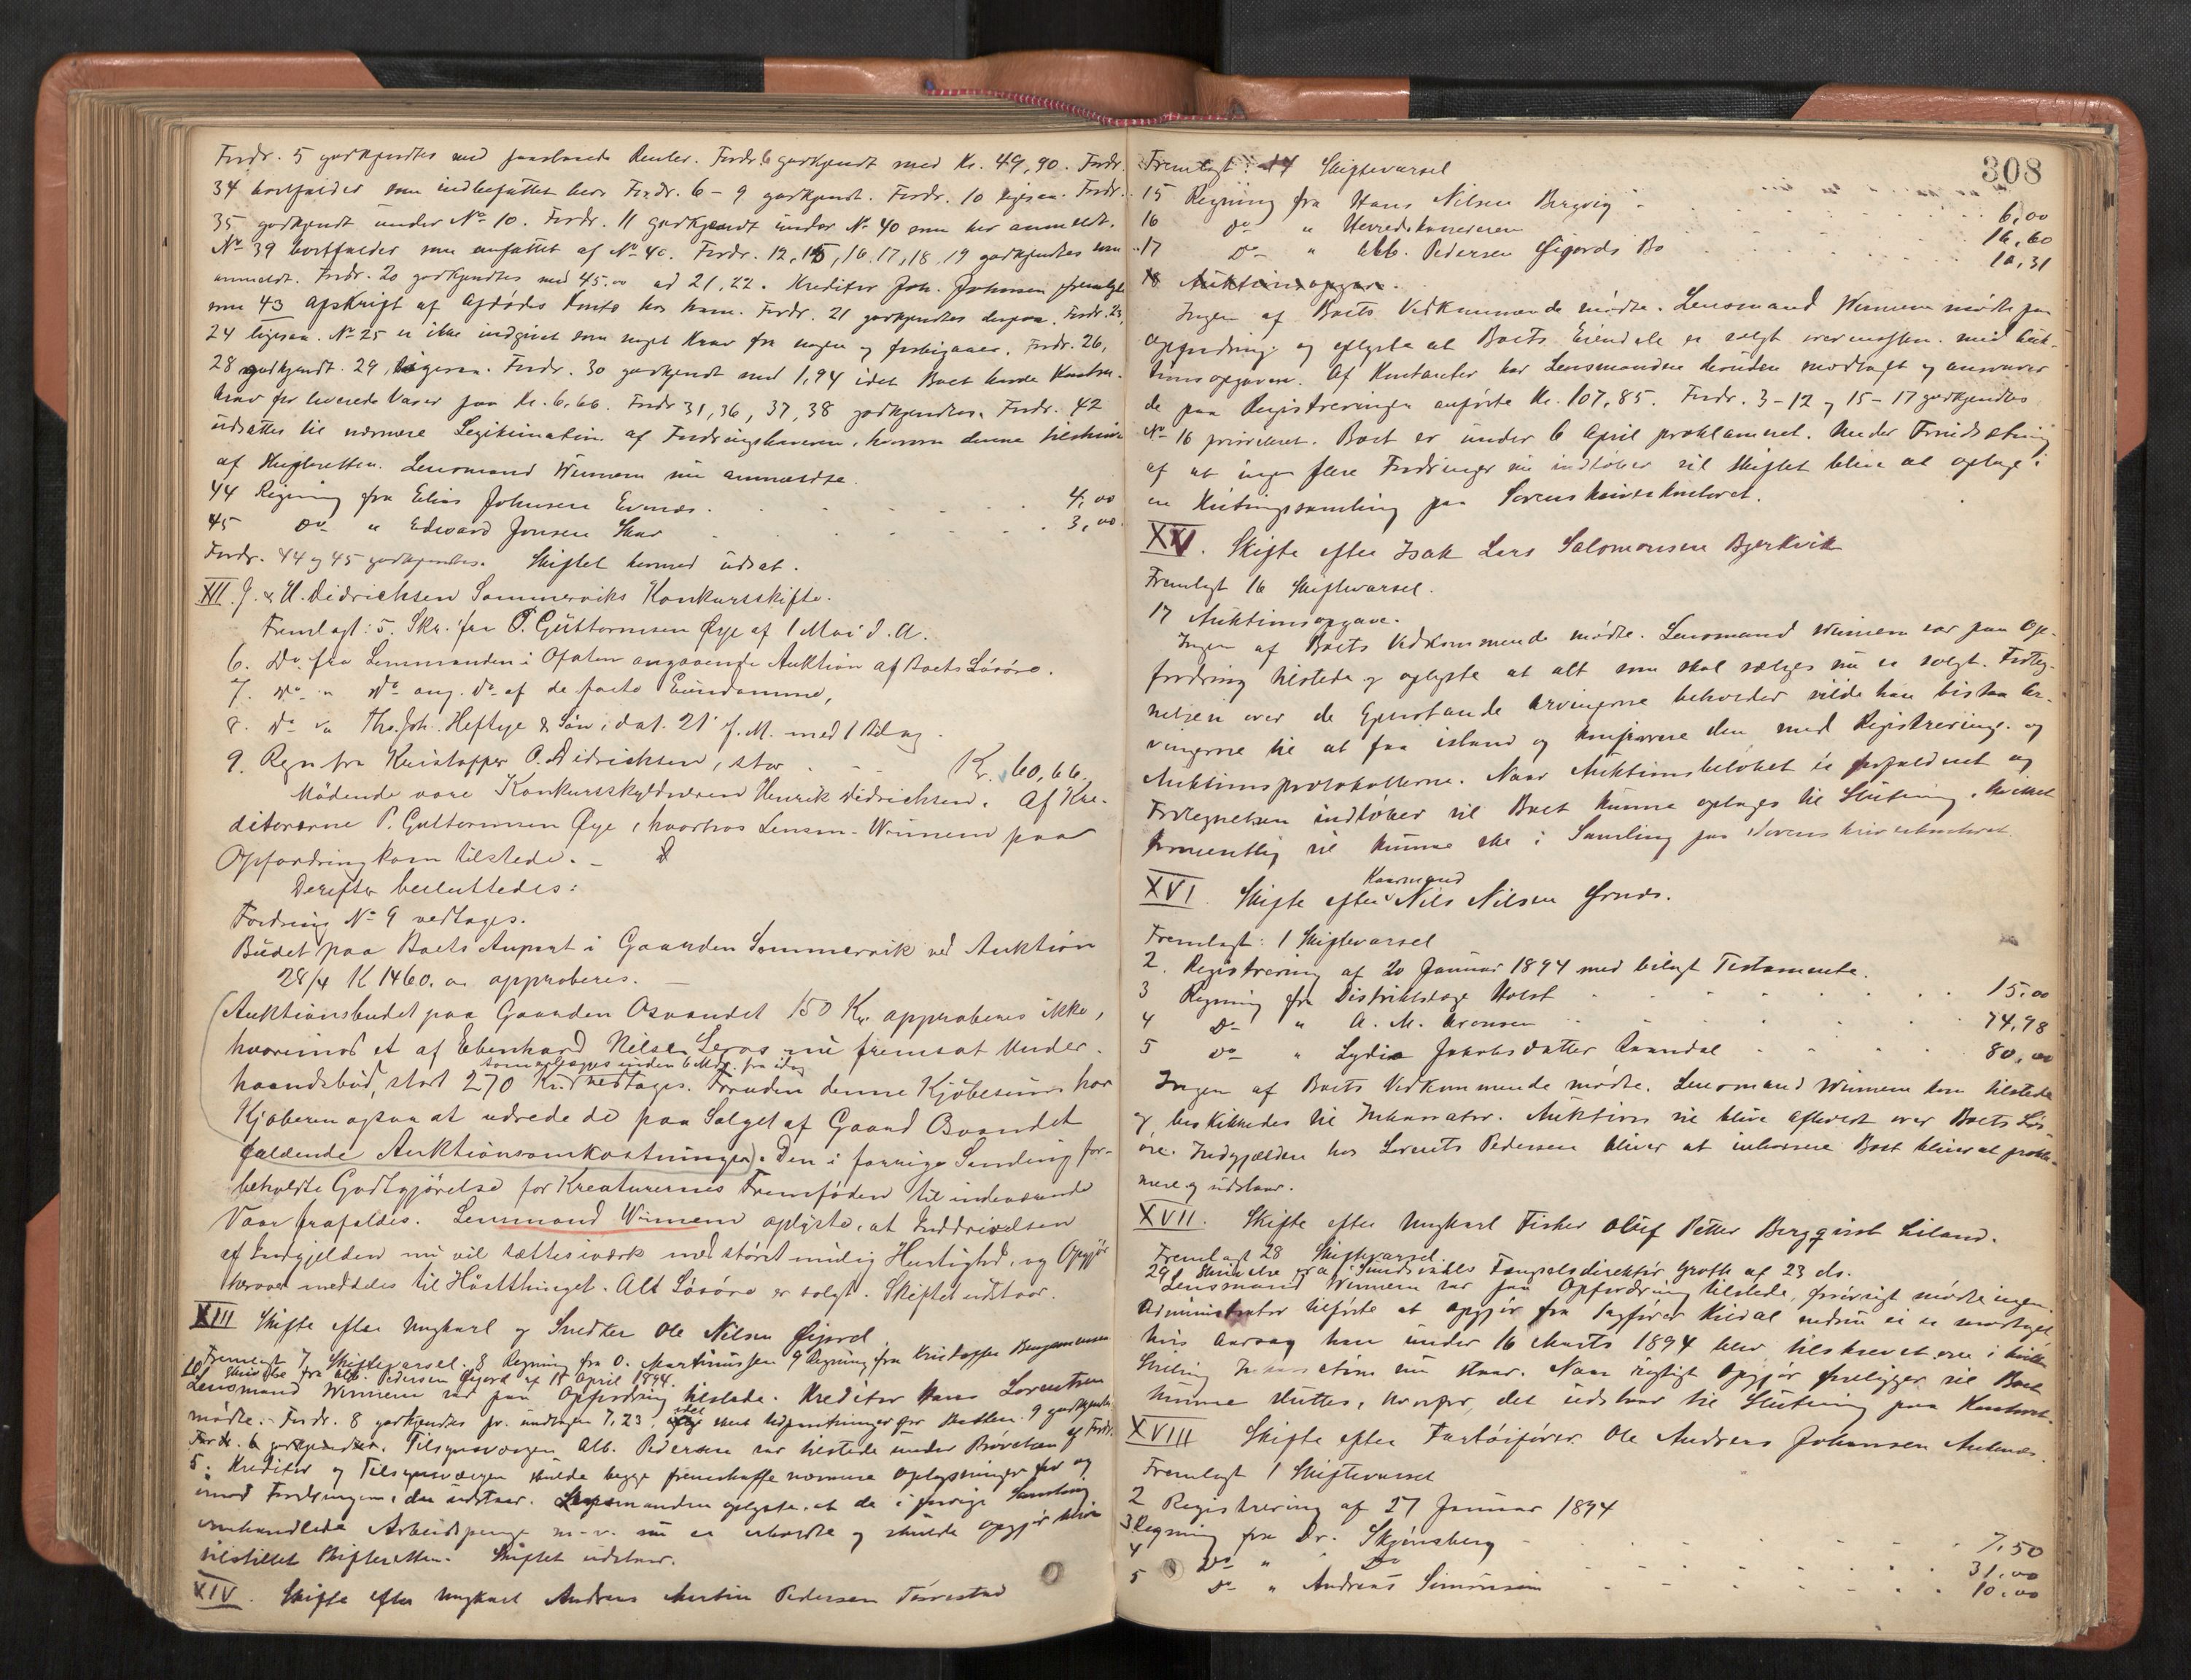 Fordr. 5 godkjendtes med paaløbende Renter. Fordr. 6 godkjendt med Kr. 49,90. Fordr.
34 bortfalder som indbefattet heri Fordr. 6 - 9 godkjendt. Fordr. 10 ligesaa. Fordr.
35 godkjendt under No 10. Fordr. 11 godkjendt under No 40 som her anmeldt.
No 39 bortfalder som omfattet af No 40. Fordr. 12, 15, 16. 17, 18. 19 godkjendtes som
anmeldt. Fordr. 20 godkjendtes med 45.00 ad 21, 22. Kreditor Joh. Johnsen fremlagde
som 43 Afskrift af Afdødes Konto hos ham. Fordr. 21 godkjendtes derpaa. Fordr. 23,
24 ligesaa. No 25 er ikke indgivet som noget Krav fra nogen og forbigaaes. Fordr. 26,
28 godkjendt. 29, ligesaa. Fordr. 30 godkjendt med 1,94 idet Boet havde Kontra-
krav for leverede Varer paa Kr. 6.66. Fordr 31, 36, 37, 38 godkjendtes. Fordr. 42
udsattes til nærmere Legitimation af Fordringshaveren, hvorom denne tilskrives
af Skifteretten. Lensmand Wimem nu anmeldte.
44 Regning fra Elias Johnsen Evenæs . 4,00
45 Do " Edward Jonsen Skar . 3,00.
Fordr. 44 og 45 godkjendtes. Skiftet hermed udsat.
XII. J. & H. Didrichsen Sommerviks Konkursskifte.
Fremlagt: 5. Skr. fra P. Guttormsen Øye af 1 Mai d. A.
6. Do. fra Lensmanden i Ofoten angaaende Auktion af Boets Løsøre.
7. Do " Do ang. do af de faste Eiendomme,
8. Do " Ths. Joh. Heftye & Søn, dat. 21' f. M. med 1 Bilag.
9. Regn fra Kristoffer P. Didrichsen, stor - - Kr. 60,66.
Mødende vare Konkursskyldneren Henrik Didrichsen. Af Kre-
ditorerne P. Guttormsen Øye, hvorhos Lensm. Wimem paa
Opfordring kom tilstede. -
Derefter besluttedes:
Fordring No 9 vedtages.
Budet paa Boets Anpart i Gaarden Sommervik ved Auktion
28/4 K 1460.00 approberes. -
(Auktionsbudet paa Gaarden Osvandet 150 Kr. approberes ikke,
hvorimod et af Ebenhard Nilsen Leros nu fremsat Under-
som erlægges inden 6 Mdr. fra idag
haandsbud, stort 270 Kr. vedtages. Foruden denne Kjøbesum har
Kjøberen ogsaa at udrede de paa Salget af Gaard Osvandet
faldende Auktionsomkostninger). Den i forrige Samling for-
beholdte Godtgjørelse for Kreaturernes Fremføden til indeværende
Vaar frafaldes. Lensmand Wimem oplyste, at Inddrivelsen
af Indgjelden nu vil sættes iværk med størst mulig Hurtighed, og Opgjør
herover meddeles til Høstthinget. Alt Løsøre er solgt. Skiftet udstaar.
XIII Skifte efter Ungkarl og Snedker Ole Nilsen Øijord.
Fremlagt 7 Skiftevarsel. 8 Regning fra O. Martinussen 9 Regning fra Kristoffer Benjaminsen
10 Skrivelse fra Alb. Pedersen Øijord af 18 April 1894.
Lensmand Wimem var paa Opfordring tilstede. Kreditor Hans Lorentsen
mødte. Fordr. 8 godkjendtes pr. undtagen 7,23, idet 9 godkjendt.
Fordr. 6 godkjendtes. Tilsynsværgen Alb. Pedersen var tilstede under Prøvelsen af Fordr.
5. Kreditor og Tilsynsværgen skulde begge fremskaffe nærmere Oplysninger for og
imod Fordringen, der udstaar. Lensmanden oplyste, at de i forrige Samling
omhandlede Arbeidspenge m. v. nu er erholdte og skulde Opgjør blive
tilstillet Skifteretten. Skiftet udstaar.
XIV. Skifte efter Ungkarl Andreas Martin Pedersen Tørrestad
308
Fremlagt: 14 Skiftevarsel
15 Regning fra Hans Nilsen Bergvig 6,00
16 Do " Herredskassereren 16,60
17 Do " Alb. Pedersen Øijords Bo 10,31
18 Auktionsopgave.
Ingen af Boets Vedkommende mødte. Lensmand Wimem mødte paa
Opfordring og oplyste at Boets Eiendele er solgt overensst. med Auk-
tionsopgaven. Af Kontanter har Lensmanden desuden modtaget og ansvarer
de paa Registreringen anførte Kr. 107,85. Fordr. 3-12 og 15-17 godkjendtes
No 16 prioriteret. Boet er under 6 April proklameret. Under Forudsætning
af at ingen flere Fordringer nu indløber vil Skiftet blive at optage i
en Slutningssamling paa Sorenskriverkontoret.
XV. Skifte efter Isak Lars Salomonsen Bjerkvik
Fremlagt 16 Skiftevarsel.
17 Auktionsopgave.
Ingen af Boets Vedkommende mødte. Lensmand Wimem var paa Op-
fordring tilstede og oplyste at alt som skal sælges nu er solgt. Forteg-
nelsen over de Gjenstande Arvingerne beholder vilde han bistaa Ar-
vingerne til at faa istand og konferere den med Registrerings- og
Auktionsprotokollerne. Naar Auktionsbeløbet er forfaldent og
Fortegnelsen indløber vil Boet kunne optages til Slutning, hvilket
formentlig vil kunne ske i Samling paa Sorenskriverkontoret.
Kaarmand
XVI. Skifte efter Nils Nilsen Ornes.
Fremlagt: 1 Skiftevarsel
2. Registrering af 20 Januar 1894 med bilagt Testamente.
3 Regning fra Distriktslæge Holst 15,00
4 Do " A. M. Aronsen 74,98
5 Do " Lydia Jakobsdatter Raandal 80,00
Ingen af Boets Vedkommende mødte. Lensmand Wimem kom tilstede
og beskikkedes til Inkassator. Auktion vil blive afholdt over Boets Løs-
øre. Indgjælden hos Lorents Pedersen bliver at inkassere Boet bliver at prokla-
mere og udstaar.
XVII. Skifte efter Ungkarl Fisker Oluf Petter Bergqvist Liland.
Fremlagt 28 Skiftevarsel.
29 Skrivelse fra Sundsvalls Fængselsdirektør Groth af 23 ds.
Lensmand Wimem var paa Opfordring tilstede, forøvrigt mødte ingen.
Administrator tilførte at Opgjør fra Sagfører Kildal endnu ei er modtaget
hvis Aarsag han under 16 Marts 1894 blev tilskrevet om i hvilken
Stilling Inkassationen nu staar. Naar rigtigt Opgjør foreligger vil Boet
kunne sluttes, hvorfor det udstaar til Slutning paa Kontoret.
XVIII Skifte efter Fartøifører Ole Andreas Johansen
Fremlagt 1 Skiftevarsel
2 Registrering af 27 Januar 1894
3 Regning fra Dr. Skjønsberg 7,50
4 Do " Do 31,00
5 Do " Andreas Simonsen 10,00